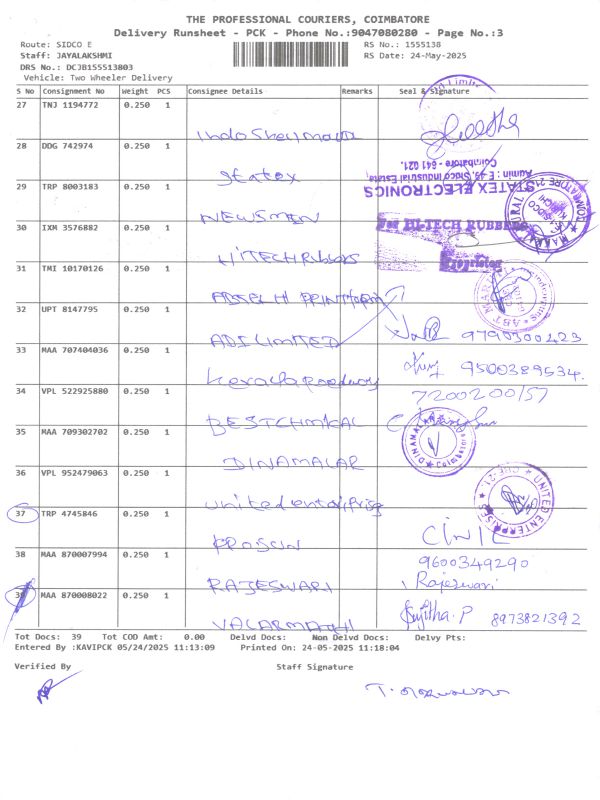 THE PROFESSIONAL COURIERS, COIMBATORE
Delivery Runsheet - PCK - Phone No.:9047080280 - Page No.:3
Route: SIDCO E
RS No.: 1555138
Staff: JAYALAKSHMI
RS Date: 24-May-2025
DRS No.: DCJB155513803
Vehicle: Two Wheeler Delivery
S No Consignment No Weight PCS Consignee Details Remarks Seal & Signature
27 TNJ 1194772 0.250 1
28 DDG 742974 0.250 1
Statex
Coimbatore - 641 021.
Admin : E-49, Sidco Industrial Estate,
STATEX ELECTRONICS
29 TRP 8003183 0.250 1
NEWSMEN
30 IXM 3576882 0.250 1
For HI-TECH RUBBERS
HITECH Rubbers
Proprietor
31 TMI 10170126 0.250 1
32 UPT 8147795 0.250 1
ADI LIMITED
9790300423
33 MAA 707404036 0.250 1
Kerala Roadway
9500389534.
34 VPL 522925880 0.250 1
7200200157
BESTCHMICAL
35 MAA 709302702 0.250 1
DINAMALAR
DINAMALAR
Coimbatore
36 VPL 952479063 0.250 1
United enterprise
UNITED ENTERPRISES
37 TRP 4745846 0.250 1
38 MAA 870007994 0.250 1
9600349290
RAJESWARI
Rajeswari
39 MAA 870008022 0.250 1
VALARMATHI
Sujitha. P 8973821392
Tot Docs: 39 Tot COD Amt: 0.00 Delvd Docs: Non Delvd Docs: Delvy Pts:
Entered By :KAVIPCK 05/24/2025 11:13:09 Printed On: 24-05-2025 11:18:04
Verified By Staff Signature